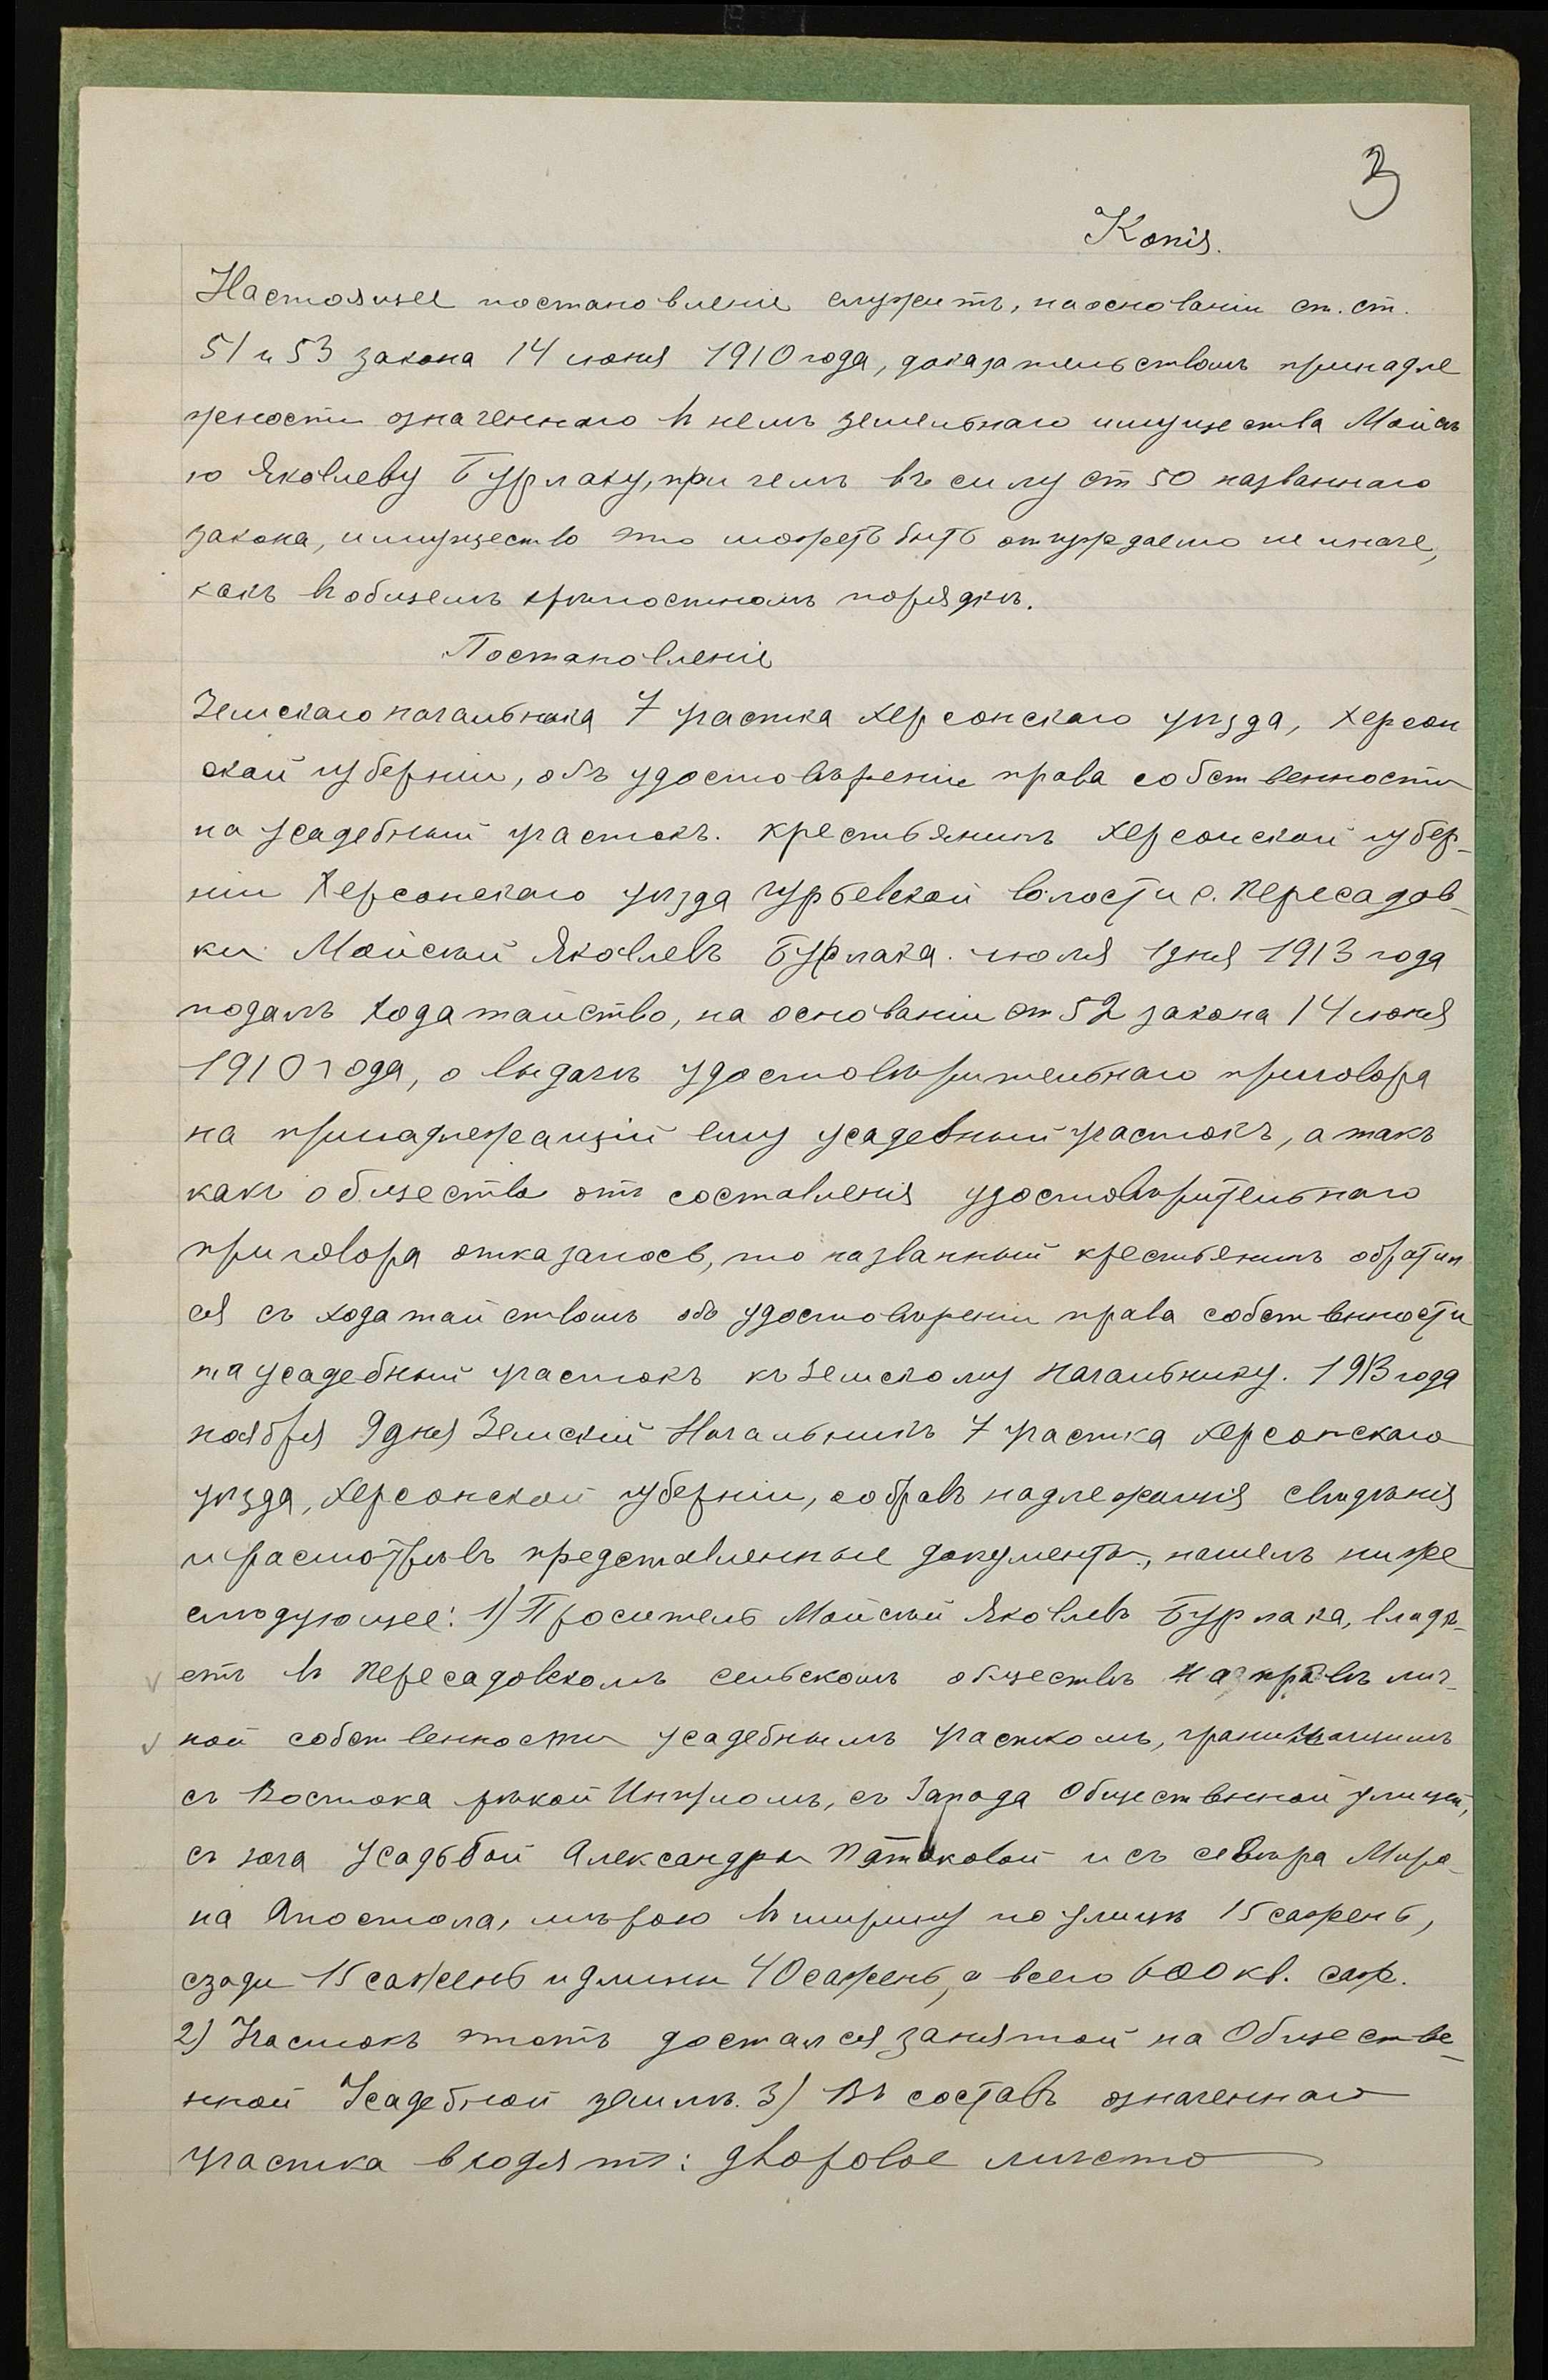 3
Копія.
Настоящее постановленіе служитъ, на основаніи ст. ст.
51 и 53 закона 14 іюня 1910 года, доказательствомъ принадле
жности означеннаго въ немъ земельнаго имущества Мойсѣ
ю Яковлеву Бурлаку, при чемъ въ силу ст 50 названнаго
закона, имущество это можетъ быть отчуждаемо не иначе,
какъ въ общемъ крѣпостномъ порядкѣ.
Постановленіе
Земскаго начальника 7 участка Херсонскаго уѣзда, Херсон
ской губерніи, объ удостовѣреніи права собственности
на усадебный участокъ. Крестьянинъ Херсонской губер-
ніи Херсонскаго уѣзда Гурьевской волости с. Пересадов-
ки Мойсей Яковлевъ Бурлака. іюля 1 дня 1913 года
подалъ ходатайство, на основаніи ст 52 закона 14 іюня
1910 года, о выдачѣ удостовѣрительнаго приговора
на принадлежащій ему усадебный участокъ, а такъ
какъ общество отъ составленія удостовѣрительнаго
приговора отказалось, то названный крестьянинъ обратил
ся съ ходатайствомъ объ удостовѣреніи права собственности
на усадебный участокъ къ Земскому Начальнику. 1913 года
ноября 9 дня Земскій Начальникъ 7 участка Херсонскаго
уѣзда, Херсонской губерніи, собравъ надлежащія свѣдѣнія
и расмотрѣвъ представленные документы, нашелъ ниже
слѣдующее: 1) Проситель Мойсей Яковлевъ Бурлака, владѣ-
етъ въ Пересадовскомъ сельскомъ обществѣ на правѣ лич-
ной собственности усадебнымъ участкомъ, граничащимъ
съ Востока рѣкой Ингуломъ, съ Запада Общественной улицей,
съ юга усадьбой Александры Пятаковой и съ сѣвера Миро-
на Апостола, мѣрою въ ширину по улицѣ 15 сажень,
сзади 15 сажень и длины 40 сажень, а всего 600 кв. саж.
2) Участокъ этотъ достался занятой на Обществе-
нной Усадебной землѣ. 3) Въ составъ означеннаго
участка входятъ: дворовое мѣсто